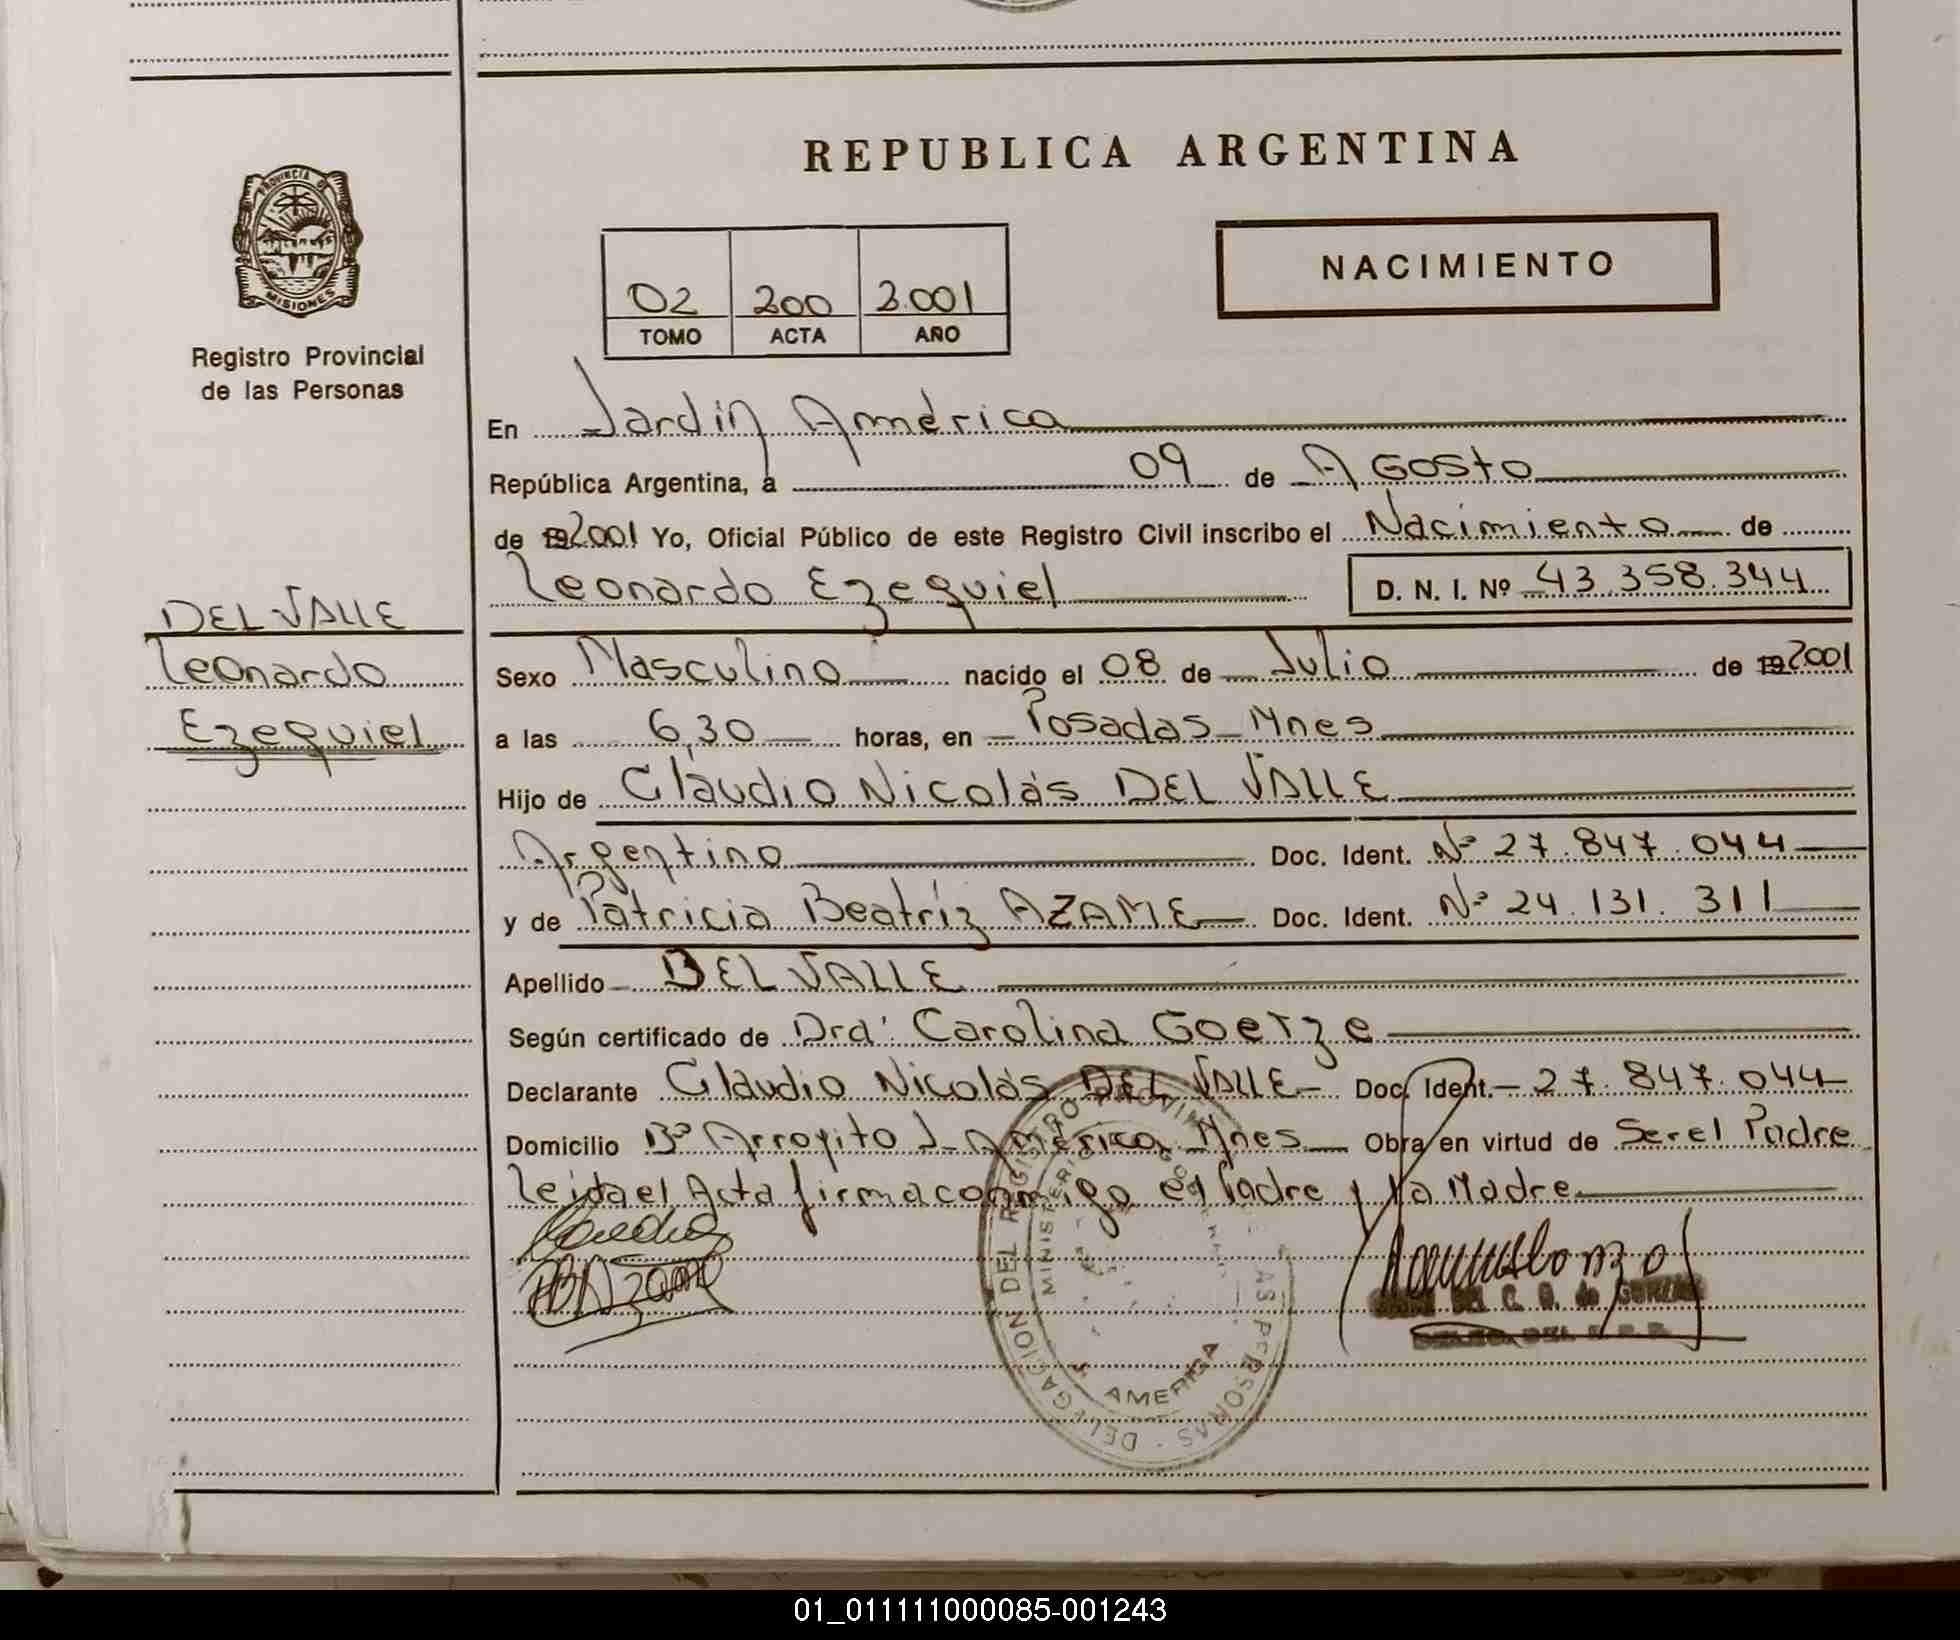 REPUBLICA ARGENTINA
PROVINCIA DE
MISIONES
Registro Provincial
de las Personas
NACIMIENTO
02 200 2.001
TOMO ACTA AÑO
En Jardín América
República Argentina, a 09 de Agosto
de 192001 Yo, Oficial Público de este Registro Civil inscribo el Nacimiento de
Leonardo Ezequiel D. N. I. Nº 43.358.344
DEL VALLE
Leonardo
Ezequiel
Sexo Masculino nacido el 08 de Julio de 192001
a las 6,30 horas, en Posadas Mnes
Hijo de Claudio Nicolás DEL VALLE
Argentino Doc. Ident. Nº 27.847.044
y de Patricia Beatríz AZAME Doc. Ident. Nº 24.131.311
Apellido DEL VALLE
Según certificado de Dra. Carolina Goetze
Declarante Claudio Nicolás DEL VALLE Doc. Ident. 27.847.044
Domicilio Bº Arroyito J. América Mnes Obra en virtud de Ser el Padre
Leida el Acta firma conmigo el Padre y la Madre
DELEGACION DEL REGISTRO PROVIN AS PERSONAS
MINISTERIO
AMERICA
01_011111000085-001243